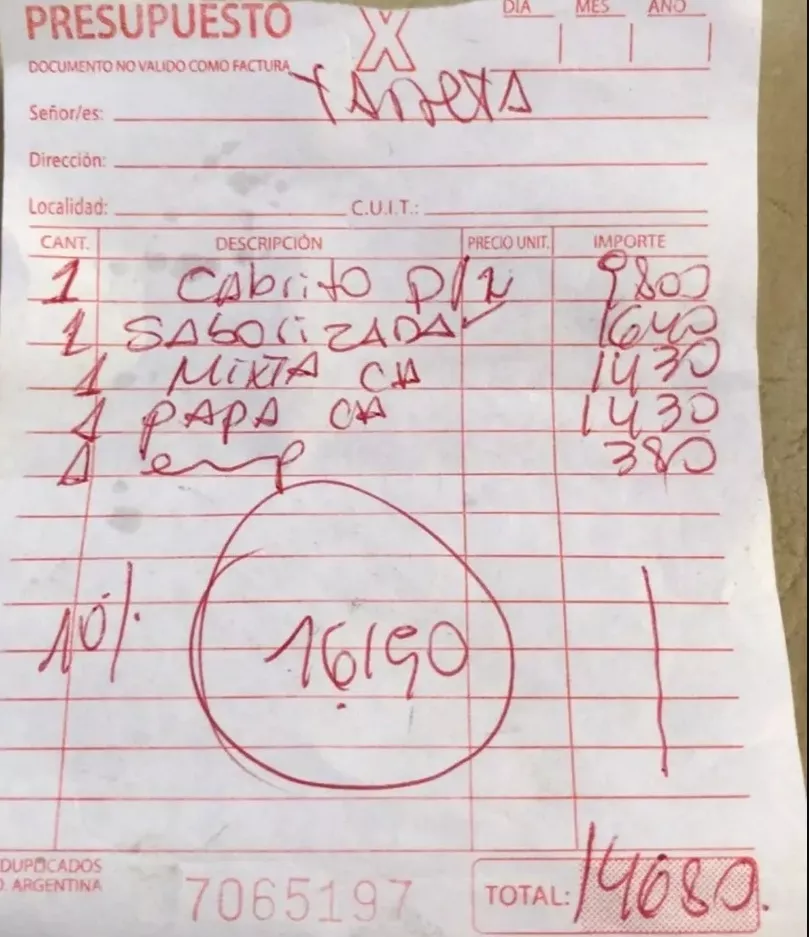 PRESUPUESTO X DIA MES AÑO
DOCUMENTO NO VALIDO COMO FACTURA
Señor/es: TARJETA
Dirección:
Localidad: C.U.I.T.:
CANT. DESCRIPCIÓN PRECIO UNIT. IMPORTE
1 CAbrito p/2 9800
1 SAborizADA 1640
1 MiXTA CH 1430
1 PAPA CH 1430
1 emp 380
10%
DUPLICADOS
ARGENTINA
7065197
TOTAL: 14680.